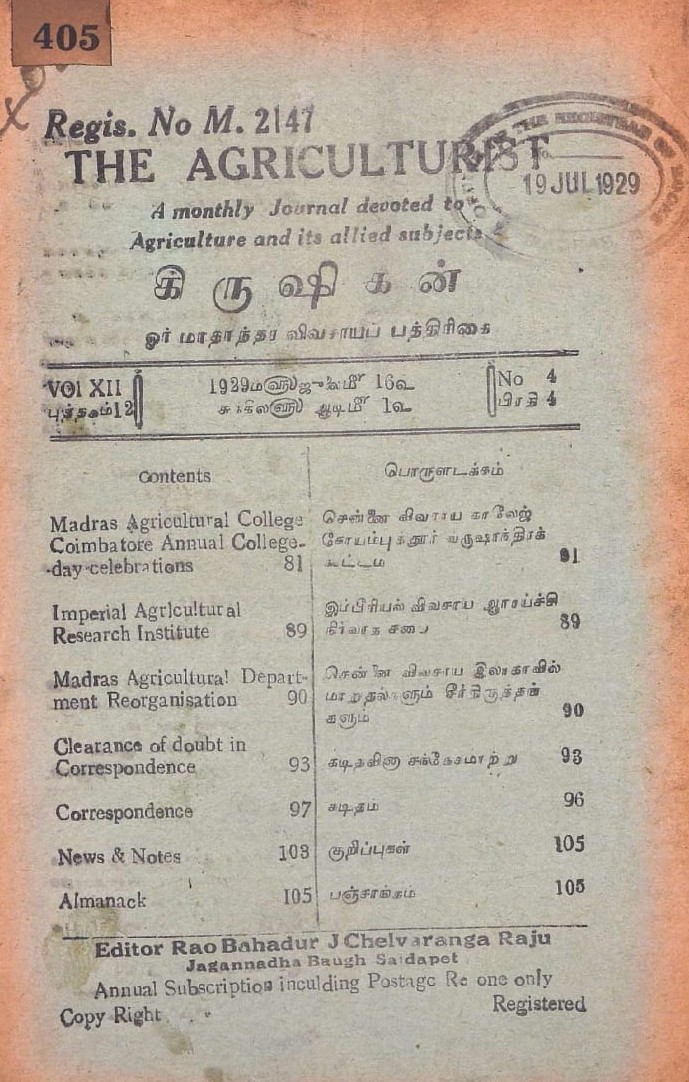 405
Regis. No M. 2147
THE AGRICULTURIST
19 JUL 1929
A monthly Journal devoted to
Agriculture and its allied subjects
கிருஷிகன்
ஓர் மாதாந்தர விவசாயப் பத்திரிகை
VOl XII
புத்தகம்12
1929ம௵ ஜுலைமீ 16௳
சுக்கில௵ ஆடிமீ 1௳
No 4
பிரதி 4
Contents
Madras Agricultural College
Coimbatore Annual College-
-day-celebrations 81
Imperial Agricultural
Research Institute 89
Madras Agricultural Depart-
ment Reorganisation 90
Clearance of doubt in
Correspondence 93
Correspondence 97
News & Notes 103
Almanack 105
பொருளடக்கம்
சென்னை விவசாய காலேஜ்
கோயம்புத்தூர் வருஷாந்திரக்
கூட்டம் 81
இம்பீரியல் விவசாய ஆராய்ச்சி
நிர்வாக சபை 89
சென்னை விவசாய இலாகாவில்
மாறுதல்களும் சீர்திருத்தங்
களும் 90
கடிதவினா சந்தேகமாற்று 93
கடிதம் 96
குறிப்புகள் 105
பஞ்சாங்கம் 105
Editor Rao Bahadur J Chelvaranga Raju
Jagannadha Baugh Saidapet
Annual Subscription inculding Postage Re one only
Copy Right Registered